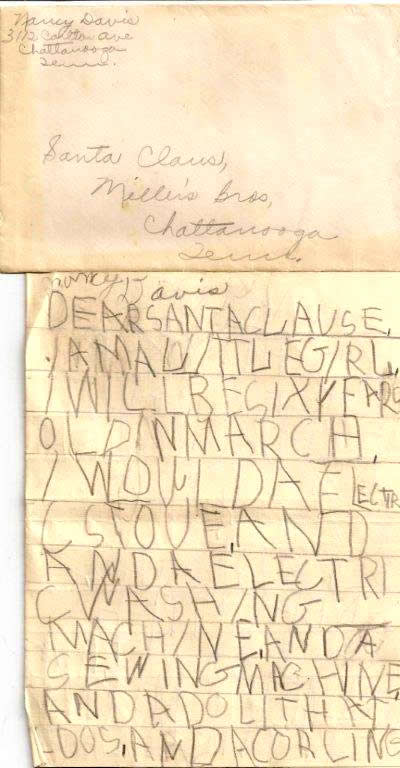 Nancy Davis
Carlton Ave
Chattanooga
Tenn.
Santa Claus,
Miller's Bros,
Chattanooga
Tenn.
Nancy Davis
DEAR SANTA CLAUSE.
I AM A LITTLE GIRL.
I WILL BE SIX YEARS
OLD IN MARCH.
I WOULD A ELECTRI
C STOVE, AND
AND A ELECTRI
C WASHING
MACHINE, AND A
SEWING MACHINE
AND A DOLL THAT
DOS, AND A CORLING